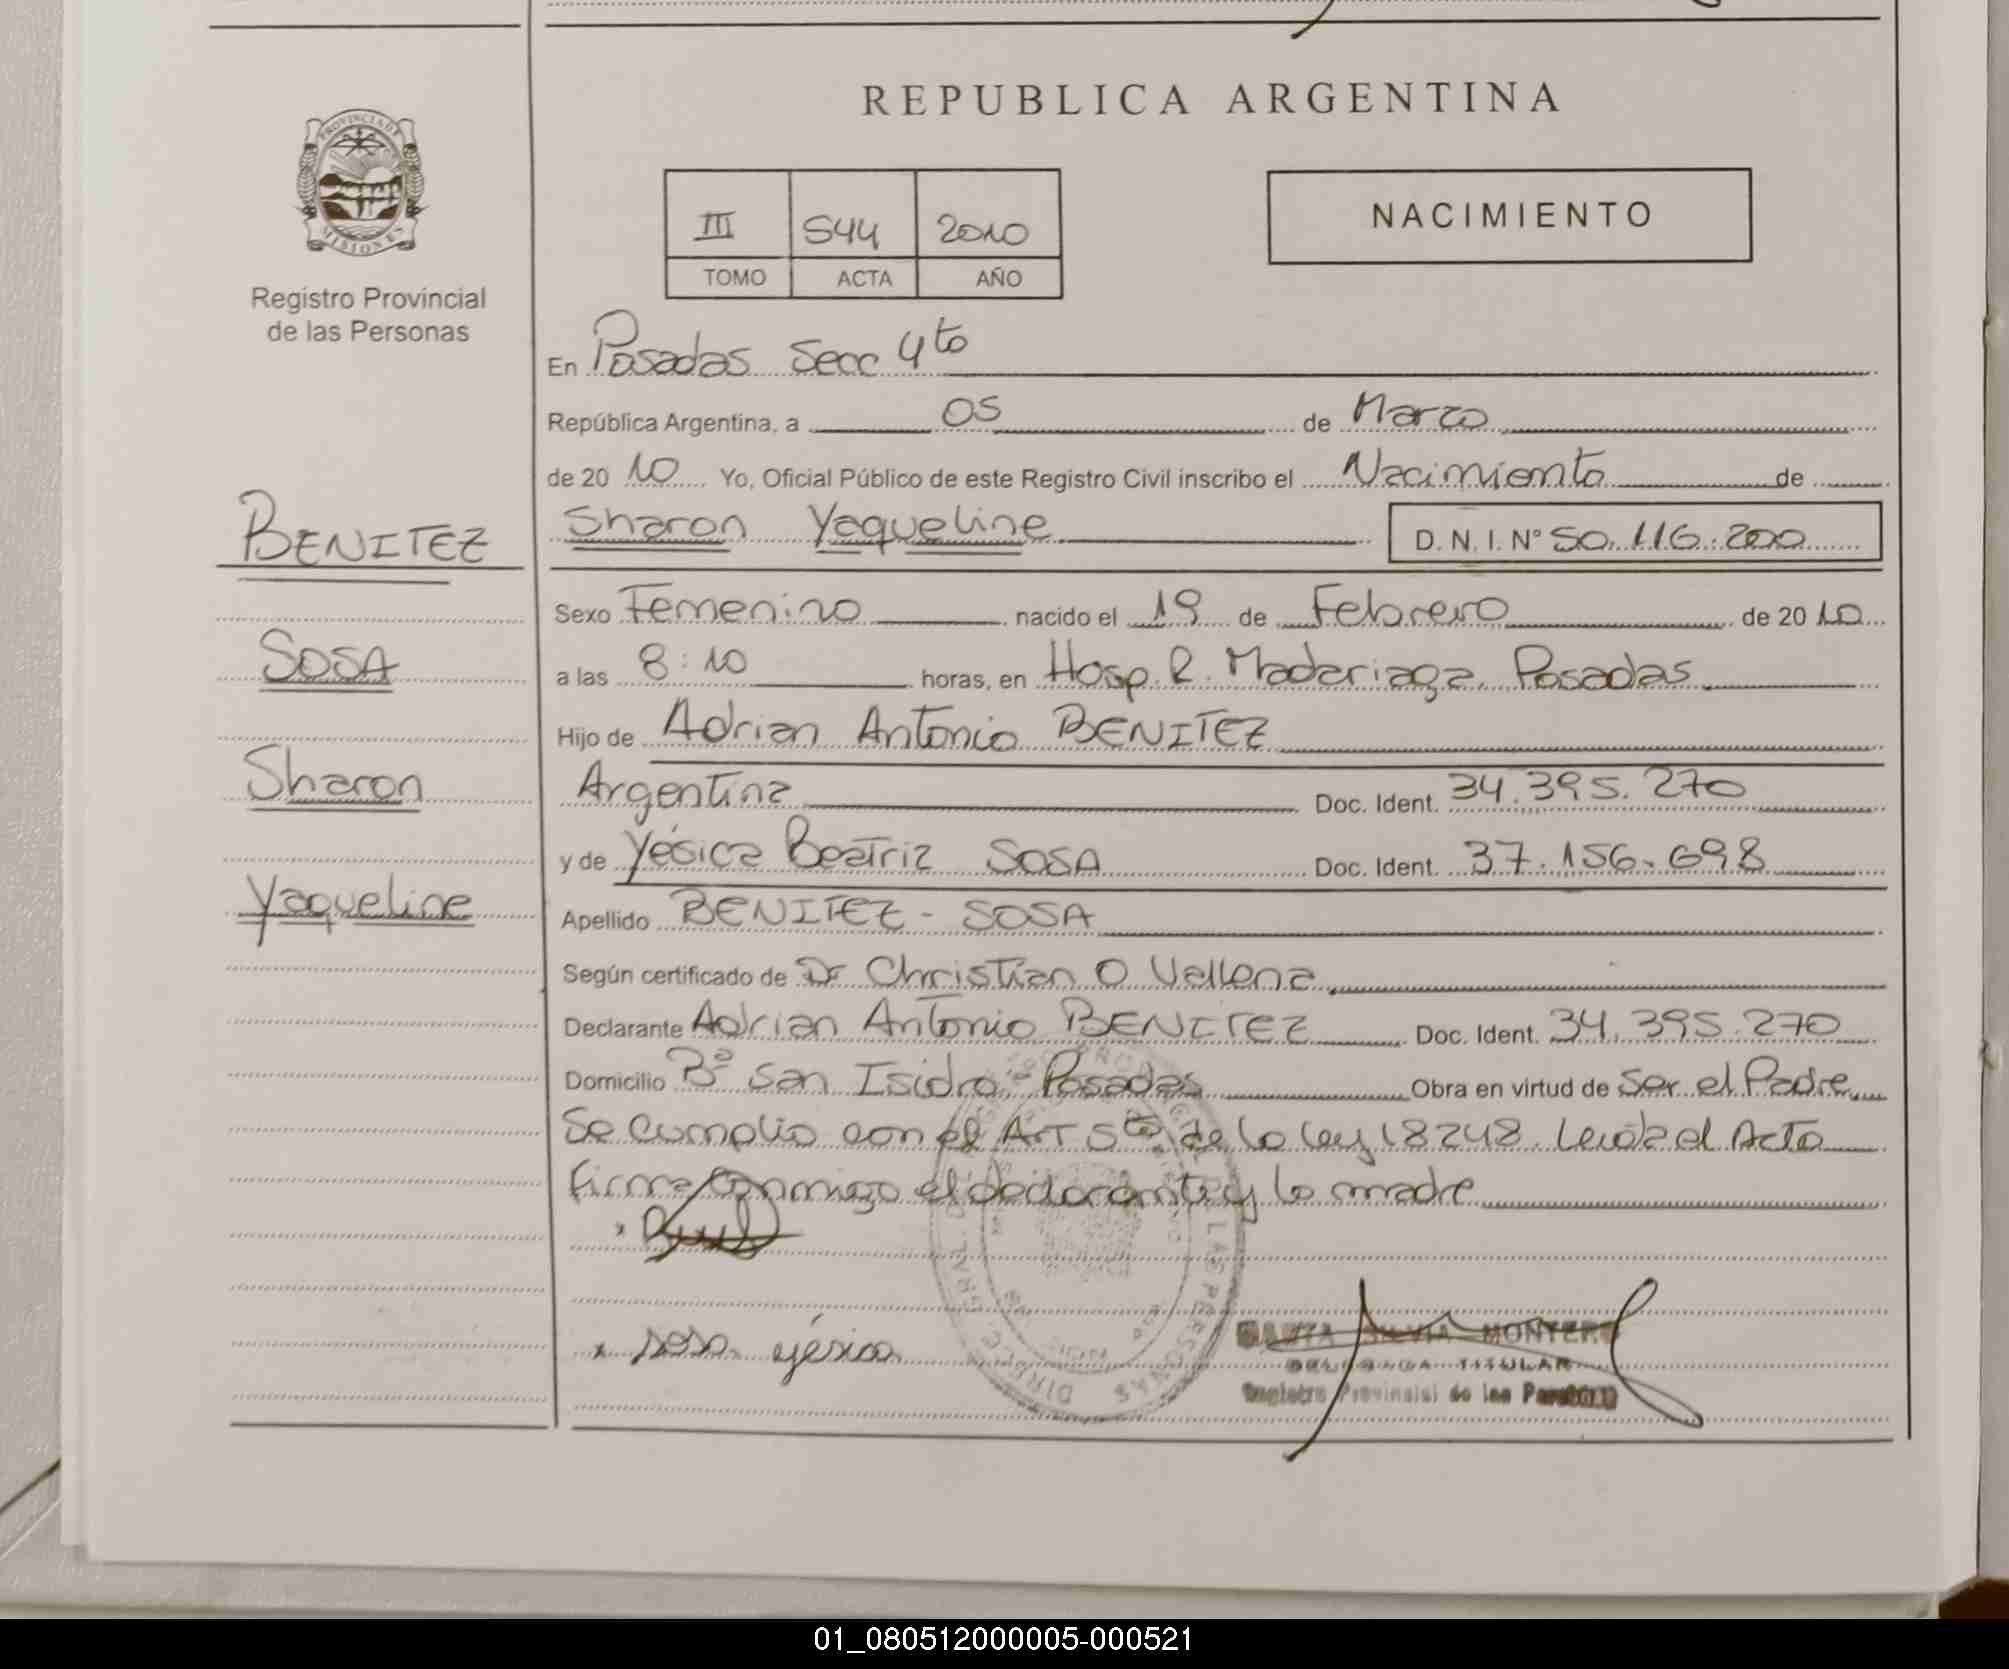 REPUBLICA ARGENTINA
PROVINCIA DE
MISIONES
Registro Provincial
de las Personas
III 544 2010
TOMO ACTA AÑO
NACIMIENTO
En Posadas Secc 4to
República Argentina, a 05 de Marzo
de 2010 Yo, Oficial Público de este Registro Civil inscribo el Nacimiento de
Sharon Yaqueline D.N.I. Nº 50.116.200
BENITEZ
SOSA
Sharon
Yaqueline
Sexo Femenino nacido el 19 de Febrero de 2010
a las 8:10 horas, en Hosp. R. Madariaga. Posadas
Hijo de Adrian Antonio BENITEZ
Argentina Doc. Ident. 34.395.270
y de Yésica Beatriz SOSA Doc. Ident. 37.156.698
Apellido BENITEZ - SOSA
Según certificado de Dr Christian O Vallena
Declarante Adrian Antonio BENITEZ Doc. Ident. 34.395.270
Domicilio Bº San Isidro - Posadas Obra en virtud de Ser el Padre
Se cumplio con el Art 5to de la ley 18248. Leida el Acta
firma conmigo el declarante y la madre
x sosa yésica
SILVIA MONTERO
TITULAR
Registro Provincial de las Personas
01_080512000005-000521